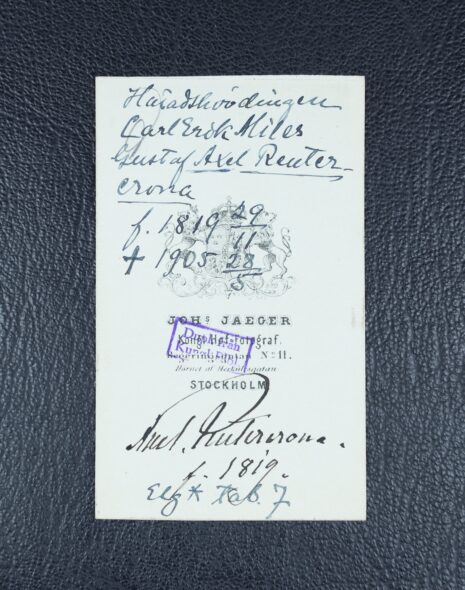 Häradshövdingen
Carl Erik Miles
Gustaf Axel Reuter-
crona
f. 1819 29/11
+ 1905 28/5
JOHS JAEGER
Kongl. Hof-Fotograf.
Regeringsgatan No 11.
Hörnet af Herkulesgatan
STOCKHOLM
Axel. Reutercrona.
f. 1819.